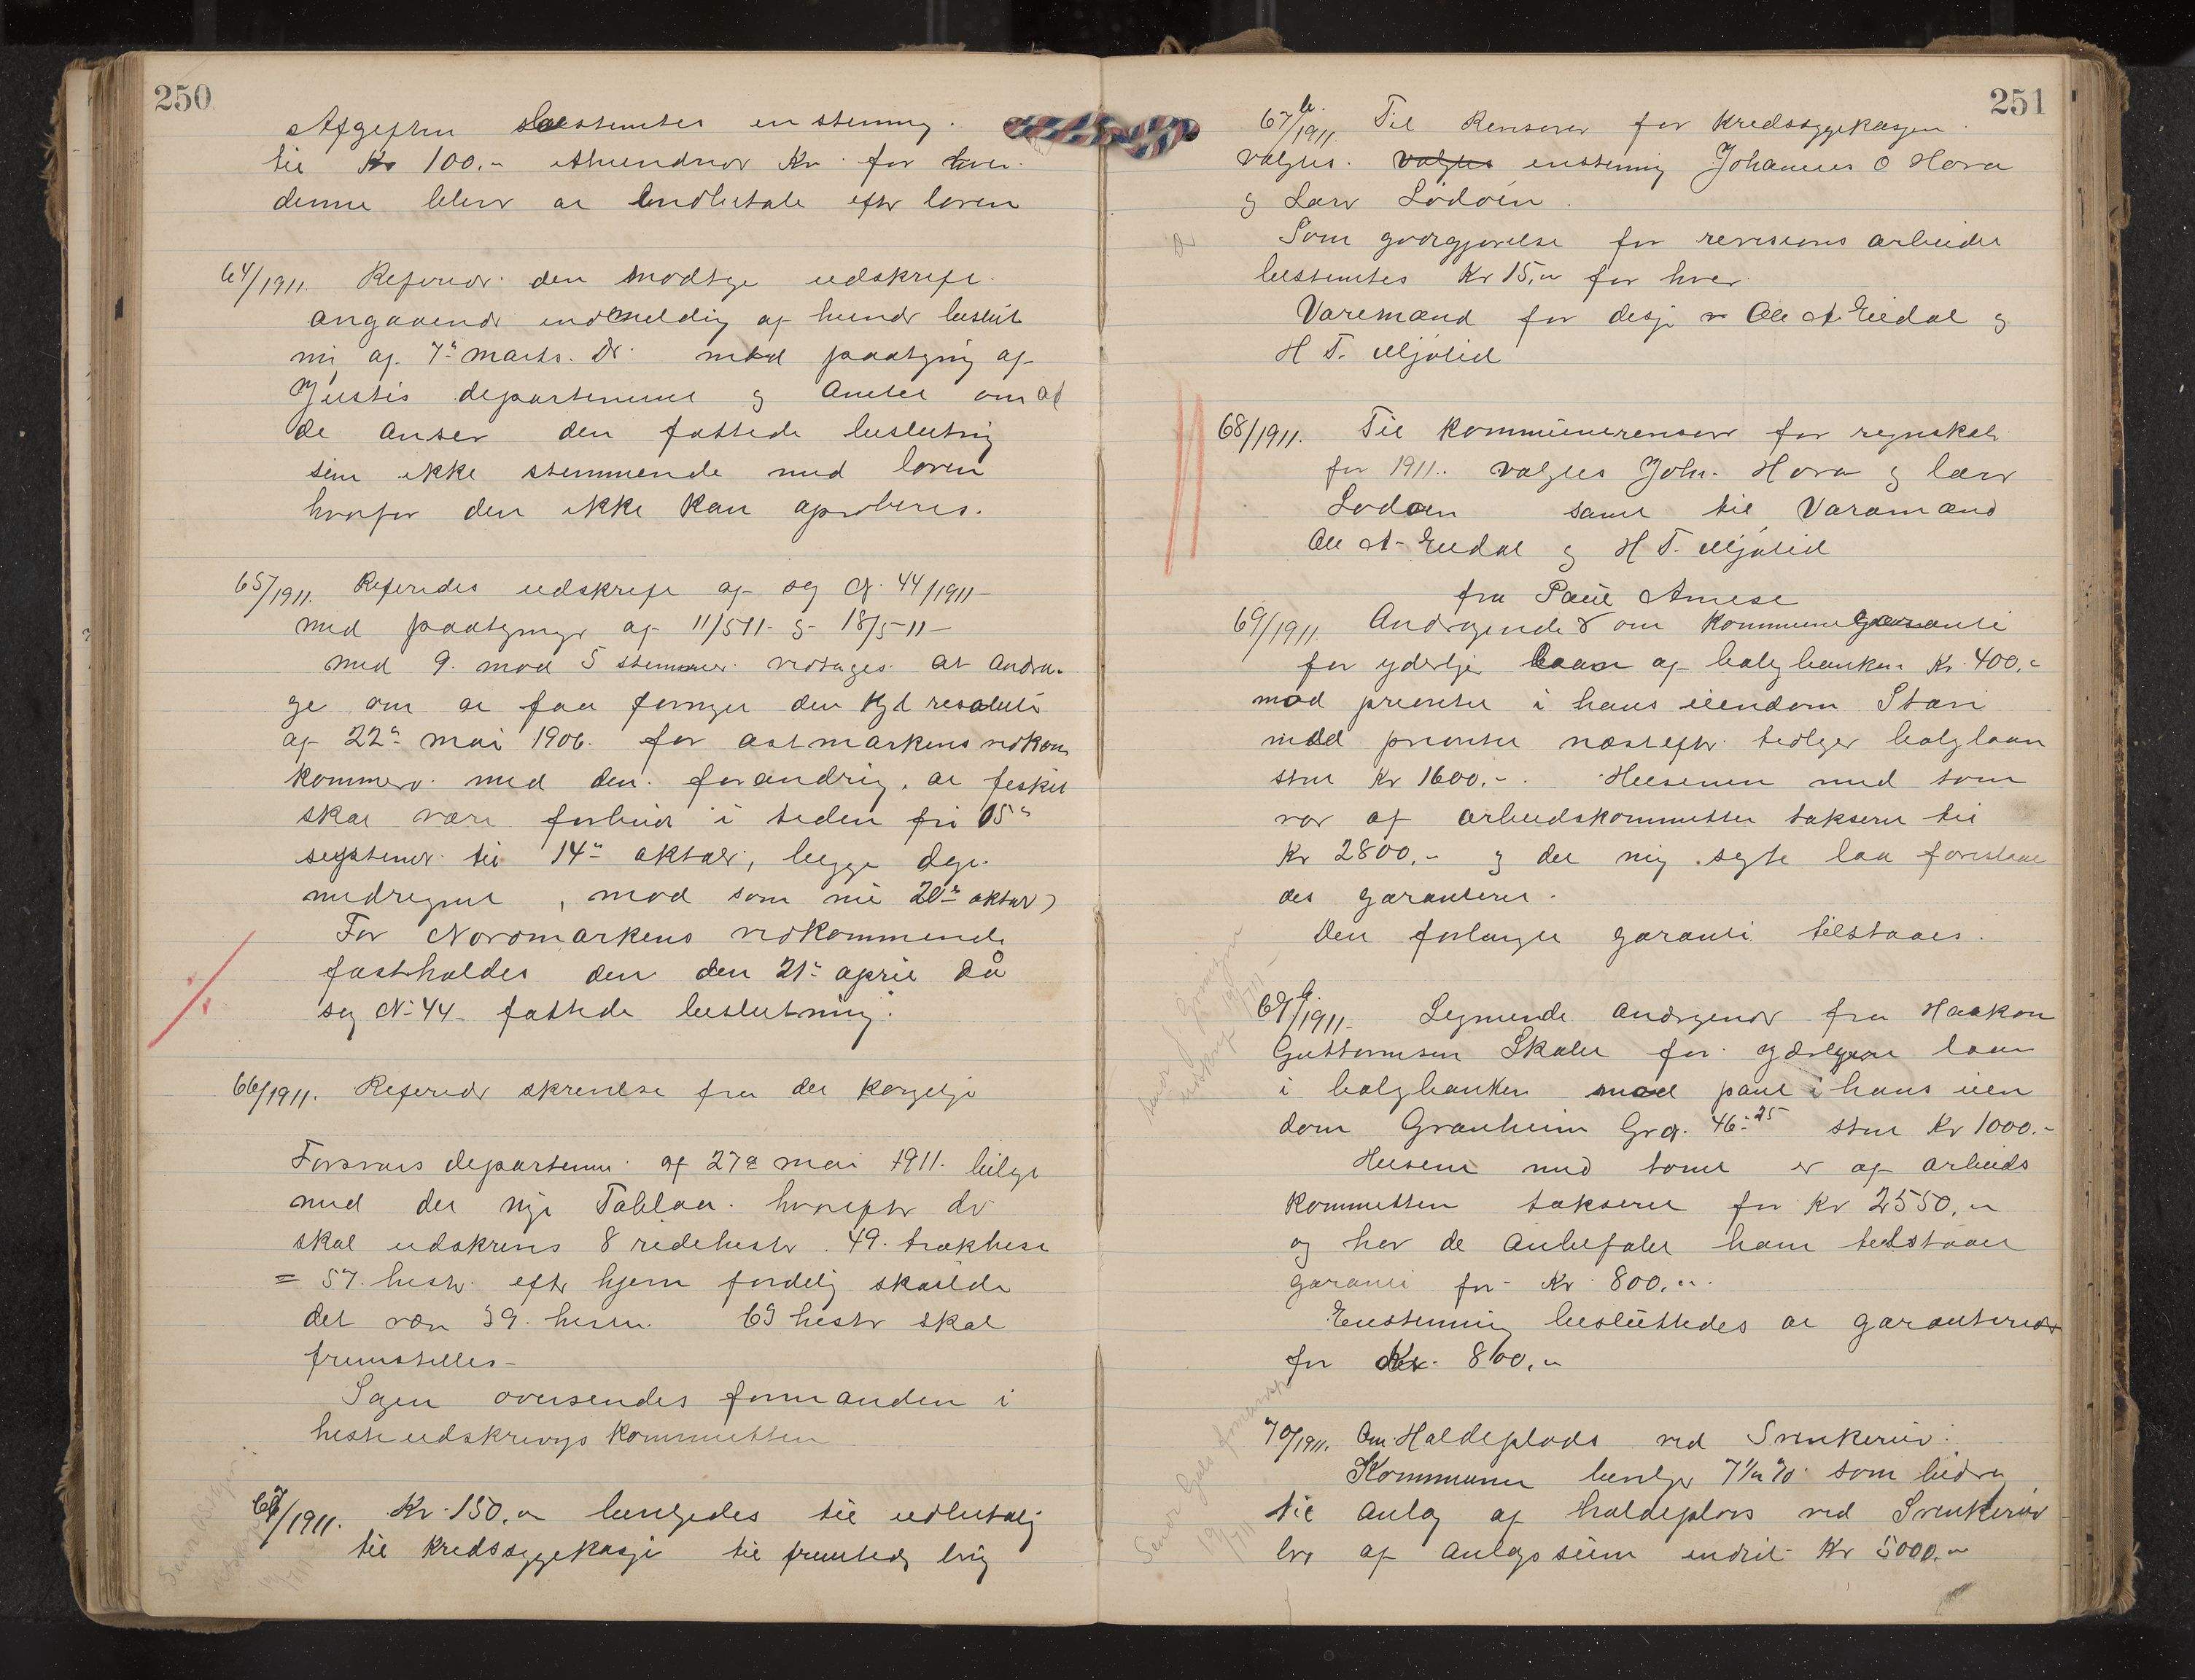 250
Afgiften bestemtes enstemmig
til Kr 100.- ethundrede Kr. for
denne blir at indbetale efter loven
64/1911. Refereredes den modtagne udskrift
angaaende indmelding af hunde beslut
ning af 7de marts. med paategning af
Justis departementet og Amtet om at
de anser den fattede beslutning
som ikke stemmende med loven
hvorfor den ikke kan aproberes.
65/1911. Refereredes udskrift af sag 44/1911
med paategninger af 11/5 11 og 18/5-11
med 9. mod 5 stemmer vedtages at andra
ge om at faa fornyet den Kgl resoluti
af 22de mai 1906. for østmarkens vedkom
kommende med den forandring, at fisket
skal være forbudt i tiden fra 15de
september til 14de oktober, begge dage
medregnet, mod som nu 20de oktober)
For Nordmarkens vedkommende
fastholdes den den 21de april då
sag N: 44 fattede beslutning.
66/1911. Refereredes skrivelse fra det kongelige
Forsvars departement af 27de mai 1911. bilagt
med det nye Tablaa. hvorefter der
skal udskrives 8 ridehester. 49. trækheste
= 57. hester efter hjem fordeling skulde
det være 39. hester. 69 hester skal
fremstilles-
Sagen oversendes formanden i
hesteudskrivnings kommitteen
67/1911. Kr. 150.- bevilgedes til udbetaling
til kredssygekasse til fremtidig brug
251
67b/1911 Til Revisorer for Kredssygekassen
valgtes. valgtes enstemmig Johannes O Hova
og Lars Lodøen.
Som godtgjørelse for revisions arbeidet
bestemtes Kr 15,- for hver.
Varemænd for disse Ole A. Eiedal og
H T. Mjølid
68/1911. Til kommunerevisorer for regnskab
for 1911. valgtes Joh. Hova og Lars
Lodøen samt til Varamænd
Ole A. Eiedal og H T. Mjølid
fra Paul Amese
69/1911. Andragende om Kommunegaranti
for yderlige laan af boligbanken Kr. 400.-
mod prioritet i hans eiendom Støvi
med prioritet næstefter tidligere boliglaan
stort Kr 1600.-. Husene med tomt
var af arbeidskommitteen takseret til
Kr 2800.- og det ny søgte laan foreslaaes
des garanteret.
Den forlangte garanti tilstaaes.
69b/1911. Lignende andragende fra Haakon
Guttormsen Skalet for yderligere laan
i boligbanken mod pant i hans eien
dom Granheim Grg. 46:25 stort Kr 1000.-
Husene med tomt er af arbeids
kommitteen takseret for Kr 2550.-
og har de anbefalet ham tilstaaet
garanti for Kr. 800.-.
Enstemmig besluttedes at garanteres
for Kr. 800.-
70/1911. Om Holdeplads ved Svenkerud:
Kommunen bevilger 7½ % som bidrag
til anlæg af holdeplads ved Svenkerud
bro af anlægs sum indtil Kr 5000.-